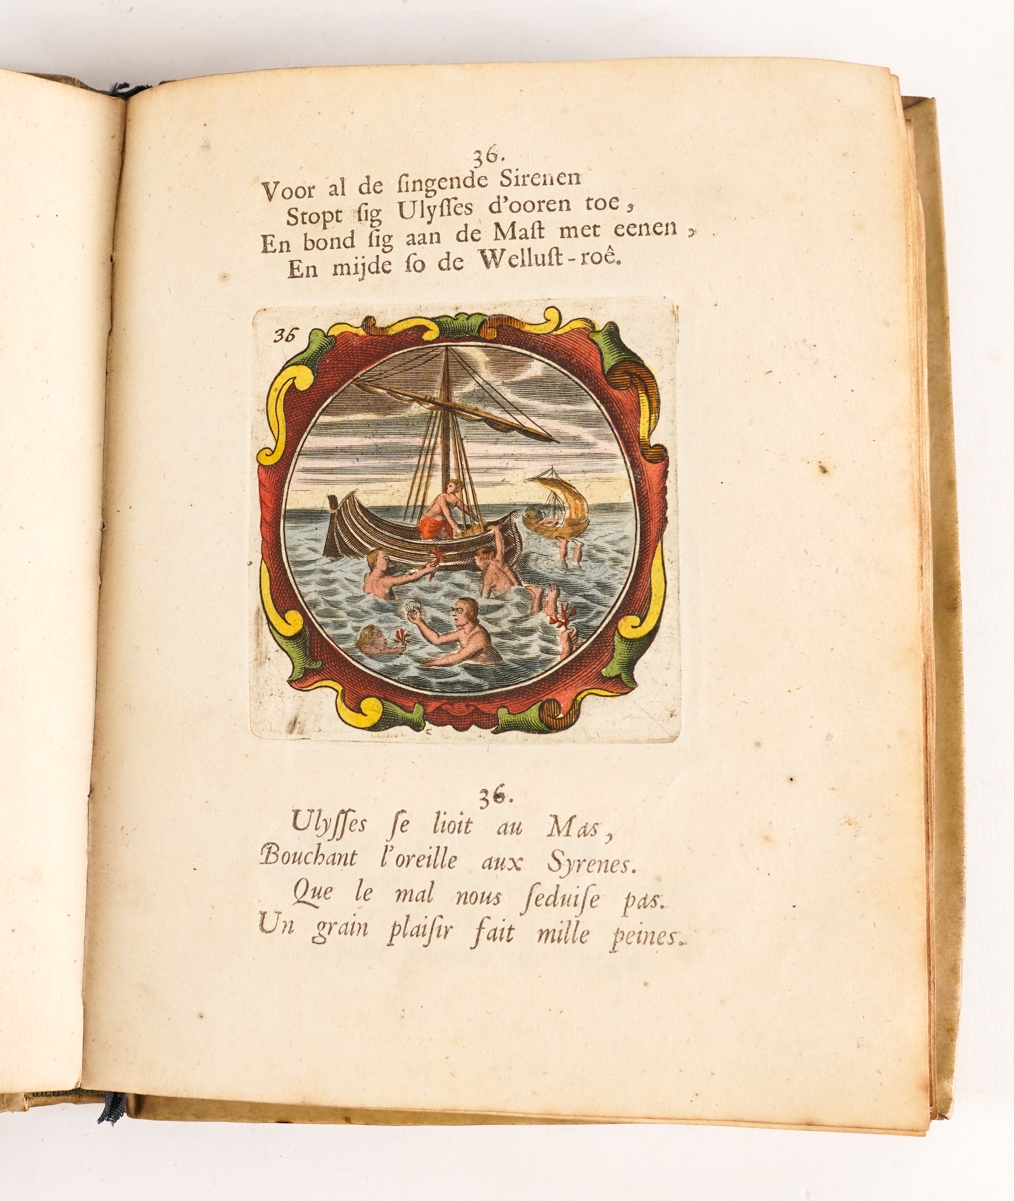 36.
Voor al de ſingende Sirenen
Stopt ſig Ulyſſes d'ooren toe,
En bond ſig aan de Maſt met eenen,
En mijde ſo de Welluſt-roê.
36
36.
Ulyſſes ſe lioit au Mas,
Bouchant l'oreille aux Syrenes.
Que le mal nous ſeduiſe pas.
Un grain plaiſir fait mille peines.